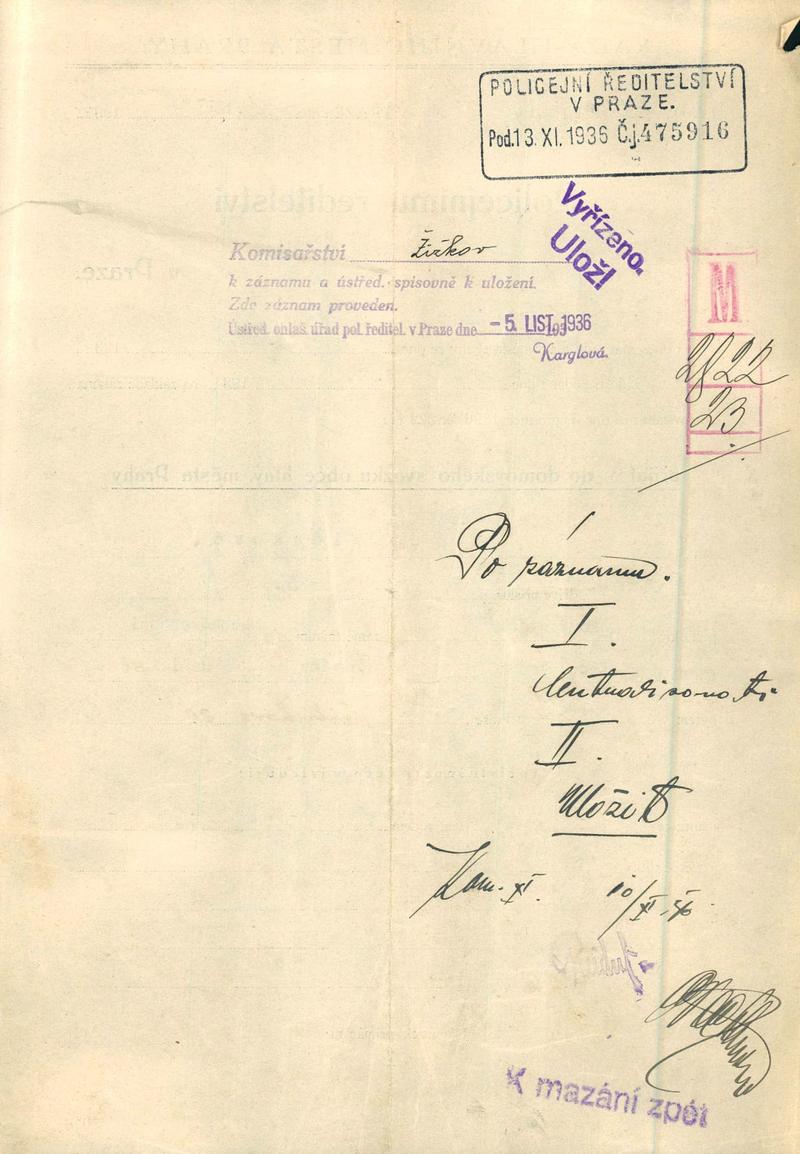 POLICEJNÍ ŘEDITELSTVÍ
V PRAZE.
Pod.13. XI. 1936 Č.j.475916
Vyřízeno.
Uloží
Komisařství Žižkov
k záznamu a ústřed. spisovně k uložení.
Zde záznam proveden.
Ústřed. ohlaš. úřad pol. ředitel. v Praze dne - 5. LIST. 1936
Karglová.
M
2822
23
Po záznamu.
I.
II.
Uložit
Kom. XI.
K mazání zpět